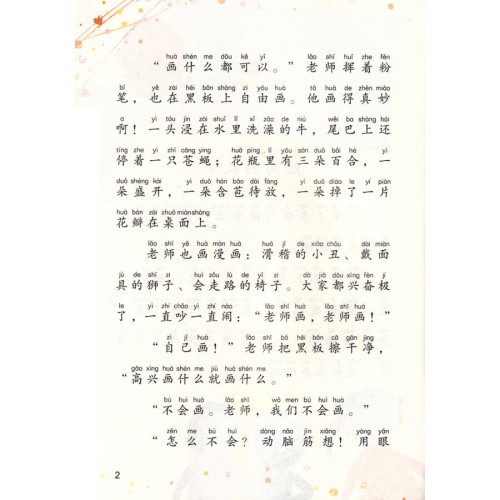 huà shén me dōu kě yǐ lǎo shī huī zhe fěn
“画什么都可以。”老师挥着粉
bǐ yě zài hēi bǎn shàng zì yóu huà tā huà de zhēn miào
笔，也在黑板上自由画。他画得真妙
a yì tóu jìn zài shuǐ lǐ xǐ zǎo de niú wěi ba shàng hái
啊！一头浸在水里洗澡的牛，尾巴上还
tíng zhe yì zhī cāng ying huā píng lǐ yǒu sān duǒ bǎi hé yì
停着一只苍蝇；花瓶里有三朵百合，一
duǒ shèng kāi yì duǒ hán bāo dài fàng yì duǒ diào le yí piàn
朵盛开，一朵含苞待放，一朵掉了一片
huā bàn zài zhuō miàn shàng
花瓣在桌面上。
lǎo shī yě huà màn huà huá jī de xiǎo chǒu dài miàn
老师也画漫画：滑稽的小丑、戴面
jù de shī zi huì zǒu lù de yǐ zi dà jiā dōu xīng fèn jí
具的狮子、会走路的椅子。大家都兴奋极
le yì zhí chǎo yì zhí nào lǎo shī huà lǎo shī huà
了，一直吵一直闹：“老师画，老师画！”
zì jǐ huà lǎo shī bǎ hēi bǎn cā gān jìng
“自己画！”老师把黑板擦干净，
gāo xìng huà shén me jiù huà shén me
“高兴画什么就画什么。”
bú huì huà lǎo shī wǒ men bú huì huà
“不会画。老师，我们不会画。”
zěn me bú huì dòng nǎo jīn xiǎng yòng yǎn
“怎么不会？动脑筋想！用眼
2